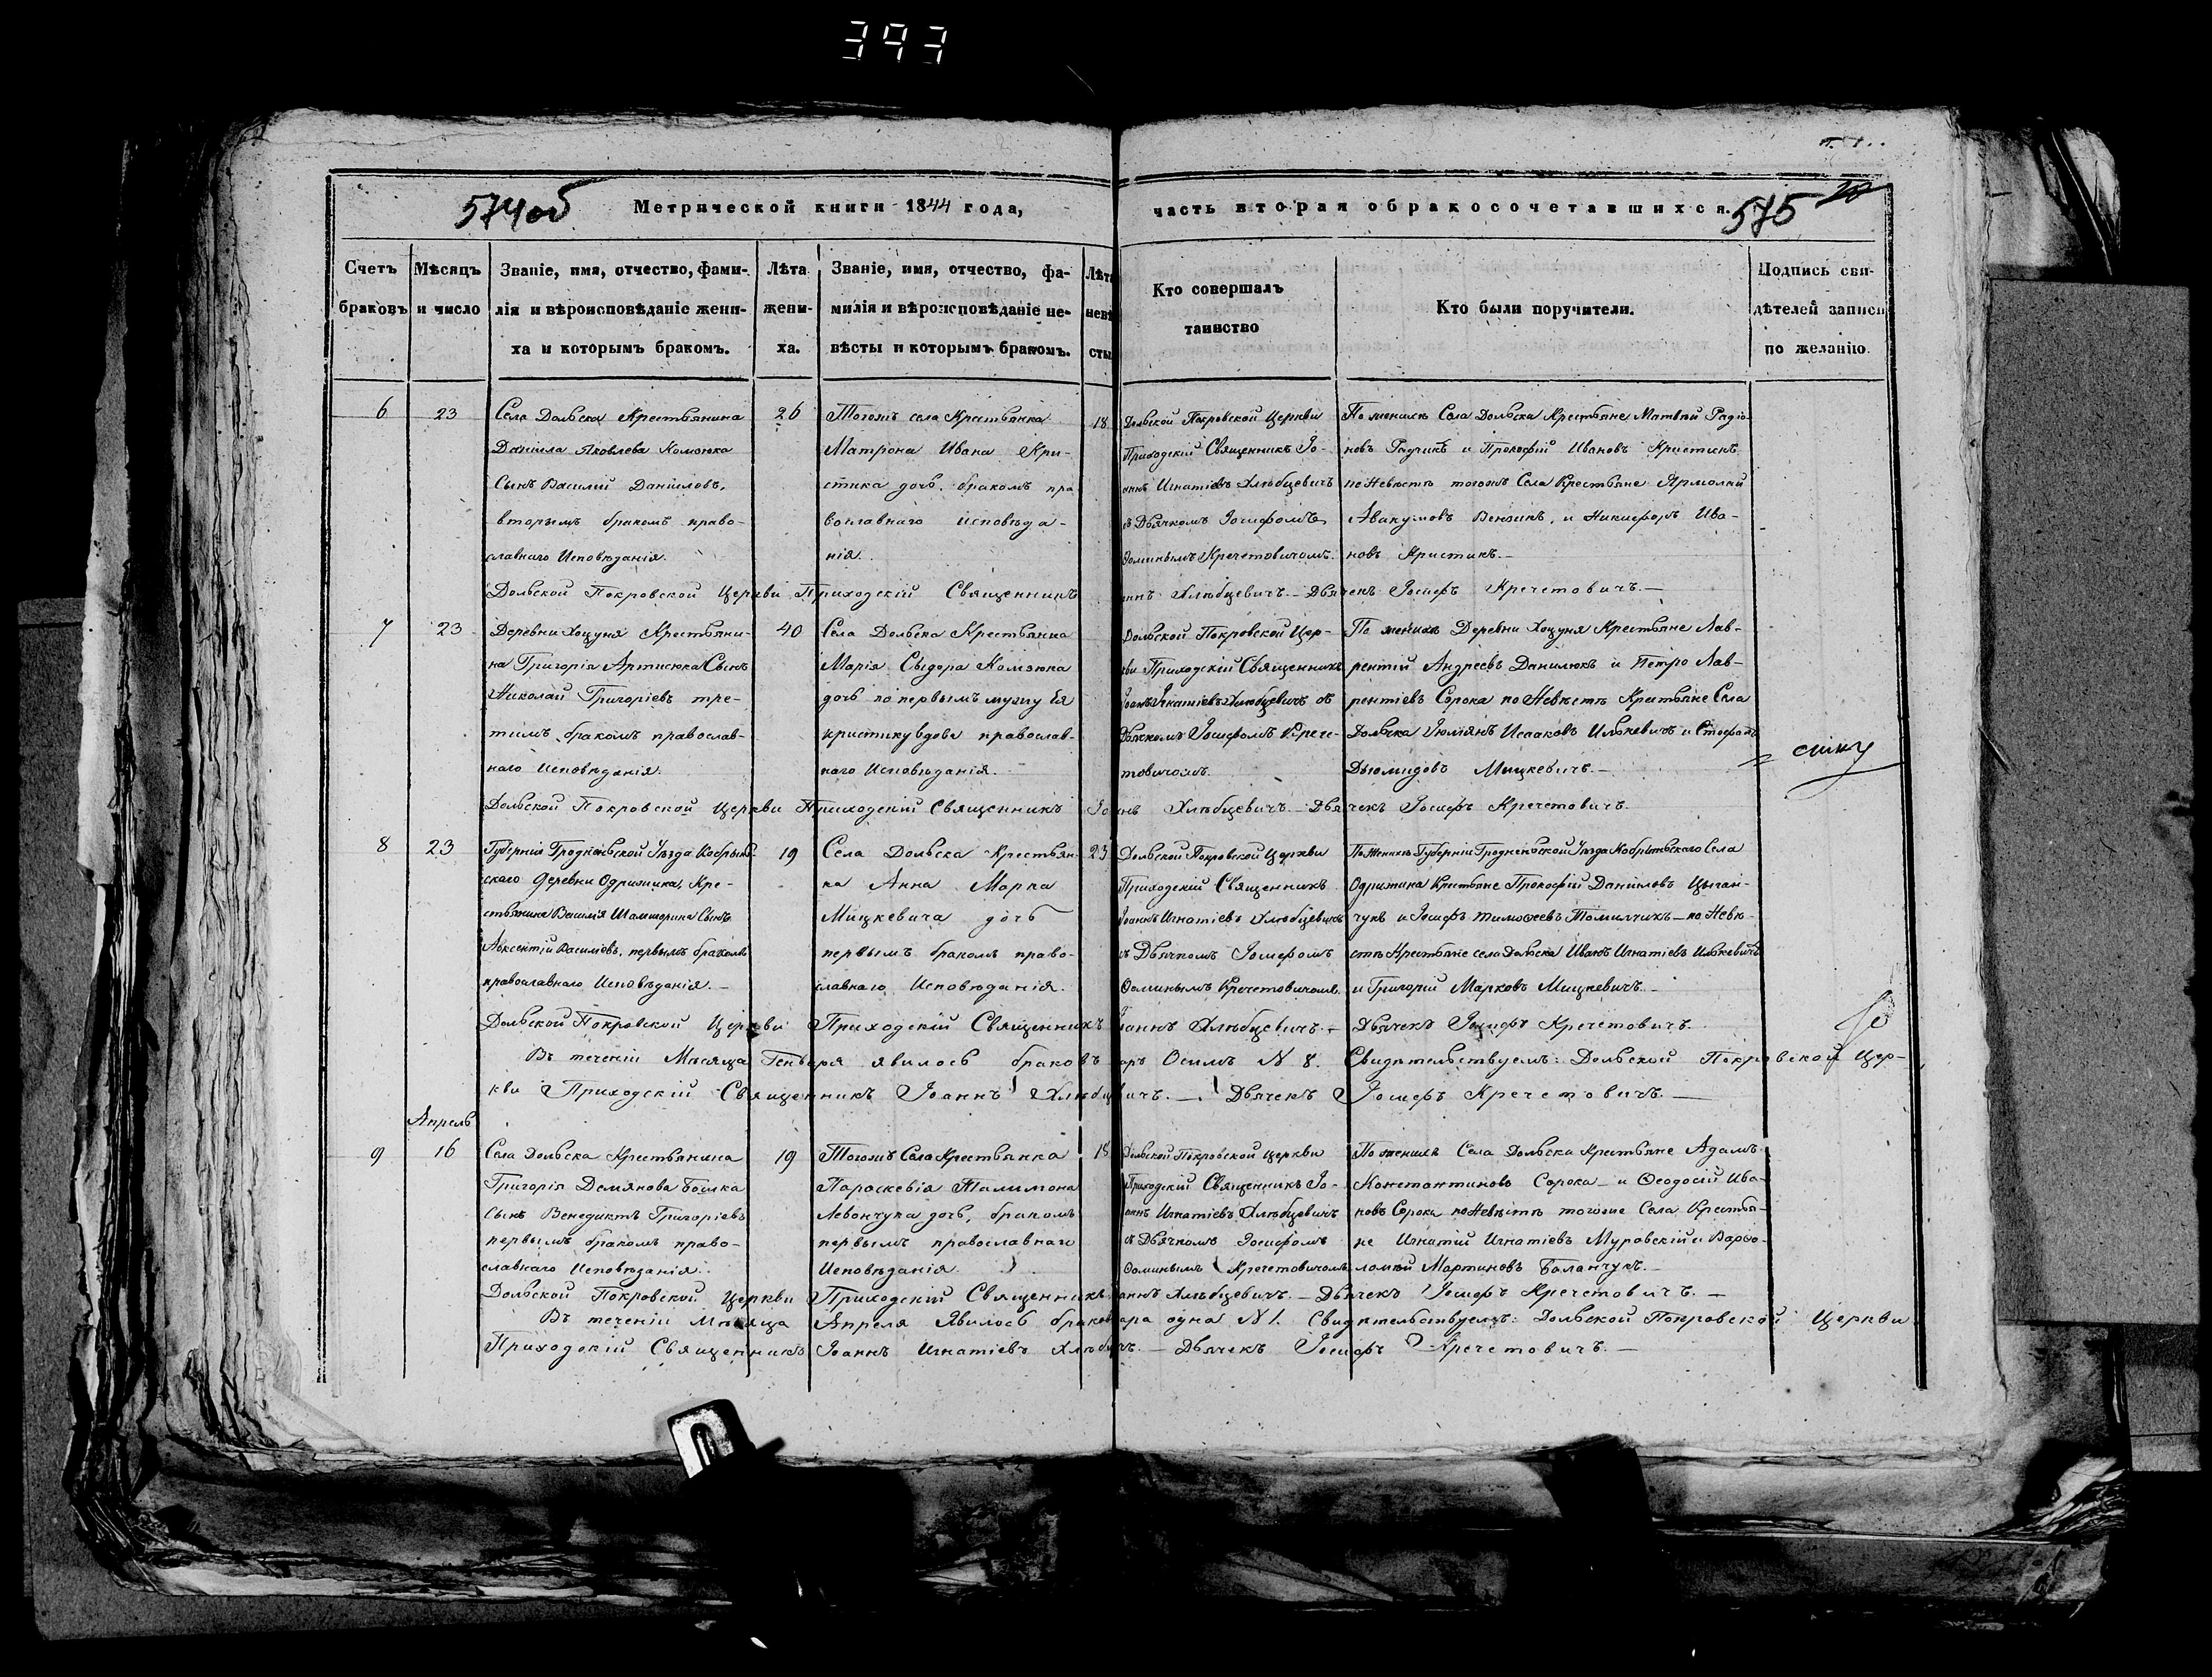 393
574об Метрической книги 1844 года,
часть вторая о бракосочетавшихся. 575
Счетъ браковъ
Мѣсяцъ и число
Званіе, имя, отчество, фами-
лія и вѣроисповѣданіе жени-
ха и которымъ бракомъ.
Лѣта жени-
ха.
Званіе, имя, отчество, фа-
милія и вѣроисповѣданіе не-
вѣсты и которымъ бракомъ.
Лѣта невѣ
сты
Кто совершалъ
таинство
Кто были поручители.
Подпись сви-
дѣтелей записи
по желанію.
6
23
Села Дольска Крестьянина
Даніила Яковлева Комзюка
Сынъ Василій Даніиловъ,
вторымъ бракомъ право-
славнаго Исповѣданія.
26
Тогожъ села Крестьянка
Матрона Ивана Кри-
стика дочь, бракомъ пра
вославнаго исповѣда-
нія.
18
Дольской Покровской Церкви
Приходскій Священникъ Іо-
аннъ Игнатіевъ Хлѣбцевичъ
съ Дьячкомъ Іосифомъ
Фоминымъ Кречетовичомъ.
По женихѣ Села Дольска Крестьяне Матвій Радіо-
новъ Радчикъ и Прокофій Ивановъ Кристикъ
по Невѣстѣ тогожъ Села Крестьяне Ярмолай
Авакумовъ Вензикъ, и Никифоръ Ива-
новъ Кристикъ.—
Дольской Покровской Церкви Приходскій Священникъ
аннъ Хлѣбцевичъ.— Дьячекъ Іосифъ Кречетовичъ.—
7
23
Деревни Хоцуня Крестьяни-
на Григорія Артисюка Сынъ
Николай Григоріевъ тре-
тимъ бракомъ православ-
наго Исповѣданія.
40
Села Дольска Крестьянка
Марія Сыдора Комзюка
дочь по первымъ мужу Ея
кристику вдова православ-
наго Исповѣданія.—
Дольской Покровской Цер-
кви Приходскій Священникъ
Іоаннъ Игнатіевъ Хлѣбцевичъ съ
Дьячкомъ Іосифомъ Крече-
товичомъ.
По женихѣ Деревни Хоцуня Крестьяне Лав-
рентій Андреевъ Данилюкъ и Петро Лав-
рентіевъ Сорока по Невѣстѣ Крестьяне Села
Дольска Исааковъ Илькевичъ и Стефанъ
Дьомидовъ Мицкевичъ.—
Дольской Покровской Церкви Приходскій Священникъ Іо
аннъ Хлѣбцевичъ.— Дьячекъ Іосифъ Кречетовичъ.
8
23
Губерніи Гродненской Уѣзда Кобрынь-
скаго Деревни Одрижина, Кре-
стьянина Василія Шамшорина Сынъ
Авксентій Василіевъ, первымъ бракомъ
православнаго Исповѣданія.—
19
Села Дольска Крестьян-
ка Анна Марка
Мицкевича дочь
первымъ бракомъ право-
славнаго Исповѣданія.
23
Дольской Покровской Церкви
Приходскій Священникъ
Іоаннъ Игнатіевъ Хлѣбцевичъ
съ Дьячкомъ Іосифомъ
Фоминымъ Кречетовичомъ.
По Женихѣ Губерніи Гродненской Уѣзда Кобрыньскаго Села
Одрижина Крестьяне Прокофій Даніиловъ Цыган-
чукъ и Іосифъ Тимофеевъ Томильчикъ—по Невѣ-
стѣ Крестьяне села Дольска Иванъ Игнатіевъ Илькевичъ
и Григорій Марковъ Мицкевичъ.—
Дольской Покровской Церкви Приходскій Священникъ
Іоаннъ Хлѣбцевичъ.— Дьячекъ Іосифъ Кречетовичъ.
Въ теченіи Мѣсяца Генваря явилось браковъ
паръ Осимъ N 8. Свидѣтельствуемъ: Дольской Покровской Цер-
кви Приходскій Священникъ Іоаннъ Хлѣбце
вичъ.—. Дьячекъ Іосифъ Кречетовичъ.—
Апрель
9
16
Села Дольска Крестьянина
Григорія Демянова Бошка
Сынъ Венедиктъ Григоріевъ
первымъ бракомъ право-
славнаго Исповѣданія.
19
Тогожъ Села Крестьянка
Параскевія Талимона
Левончука дочь, бракомъ
первымъ православнаго
Исповѣданія.
18
Дольской Покровской Церкви
Приходскій Священникъ Іо-
аннъ Игнатіевъ Хлѣбцевичъ
съ Дьячкомъ Іосифомъ
Фоминымъ Кречетовичомъ
По женихѣ Села Дольска Крестьяне Адамъ
Константиновъ Сорока—и Феодосій Ива-
новъ Сорока по Невѣстѣ тогоже Села Крестья-
не Игнатій Игнатіевъ Муровскій и Варфо-
ломѣй Мартиновъ Баланчукъ.—
Дольской Покровской Церкви Приходскій Священникъ
аннъ Хлѣбцевичъ.— Дьячекъ Іосифъ Кречетовичъ.—
Въ теченіи Мѣсяца Апреля Явилось браков
пара одна N 1. Свидѣтельствуемъ: Дольской Покровской Церкви
Приходскій Священникъ Іоаннъ Игнатіевъ Хлѣбце
вичъ.— Дьячекъ Іосифъ Кречетовичъ.—